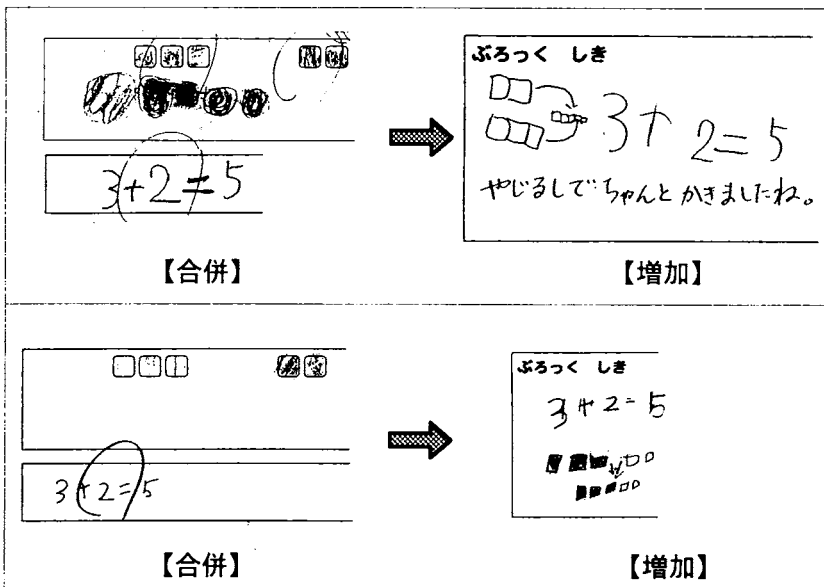 3+2=5
【合併】
ぶろっく しき
3+2=5
やじるしで ちゃんと かきましたね。
【増加】
3+2=5
【合併】
ぶろっく しき
3+2=5
【増加】